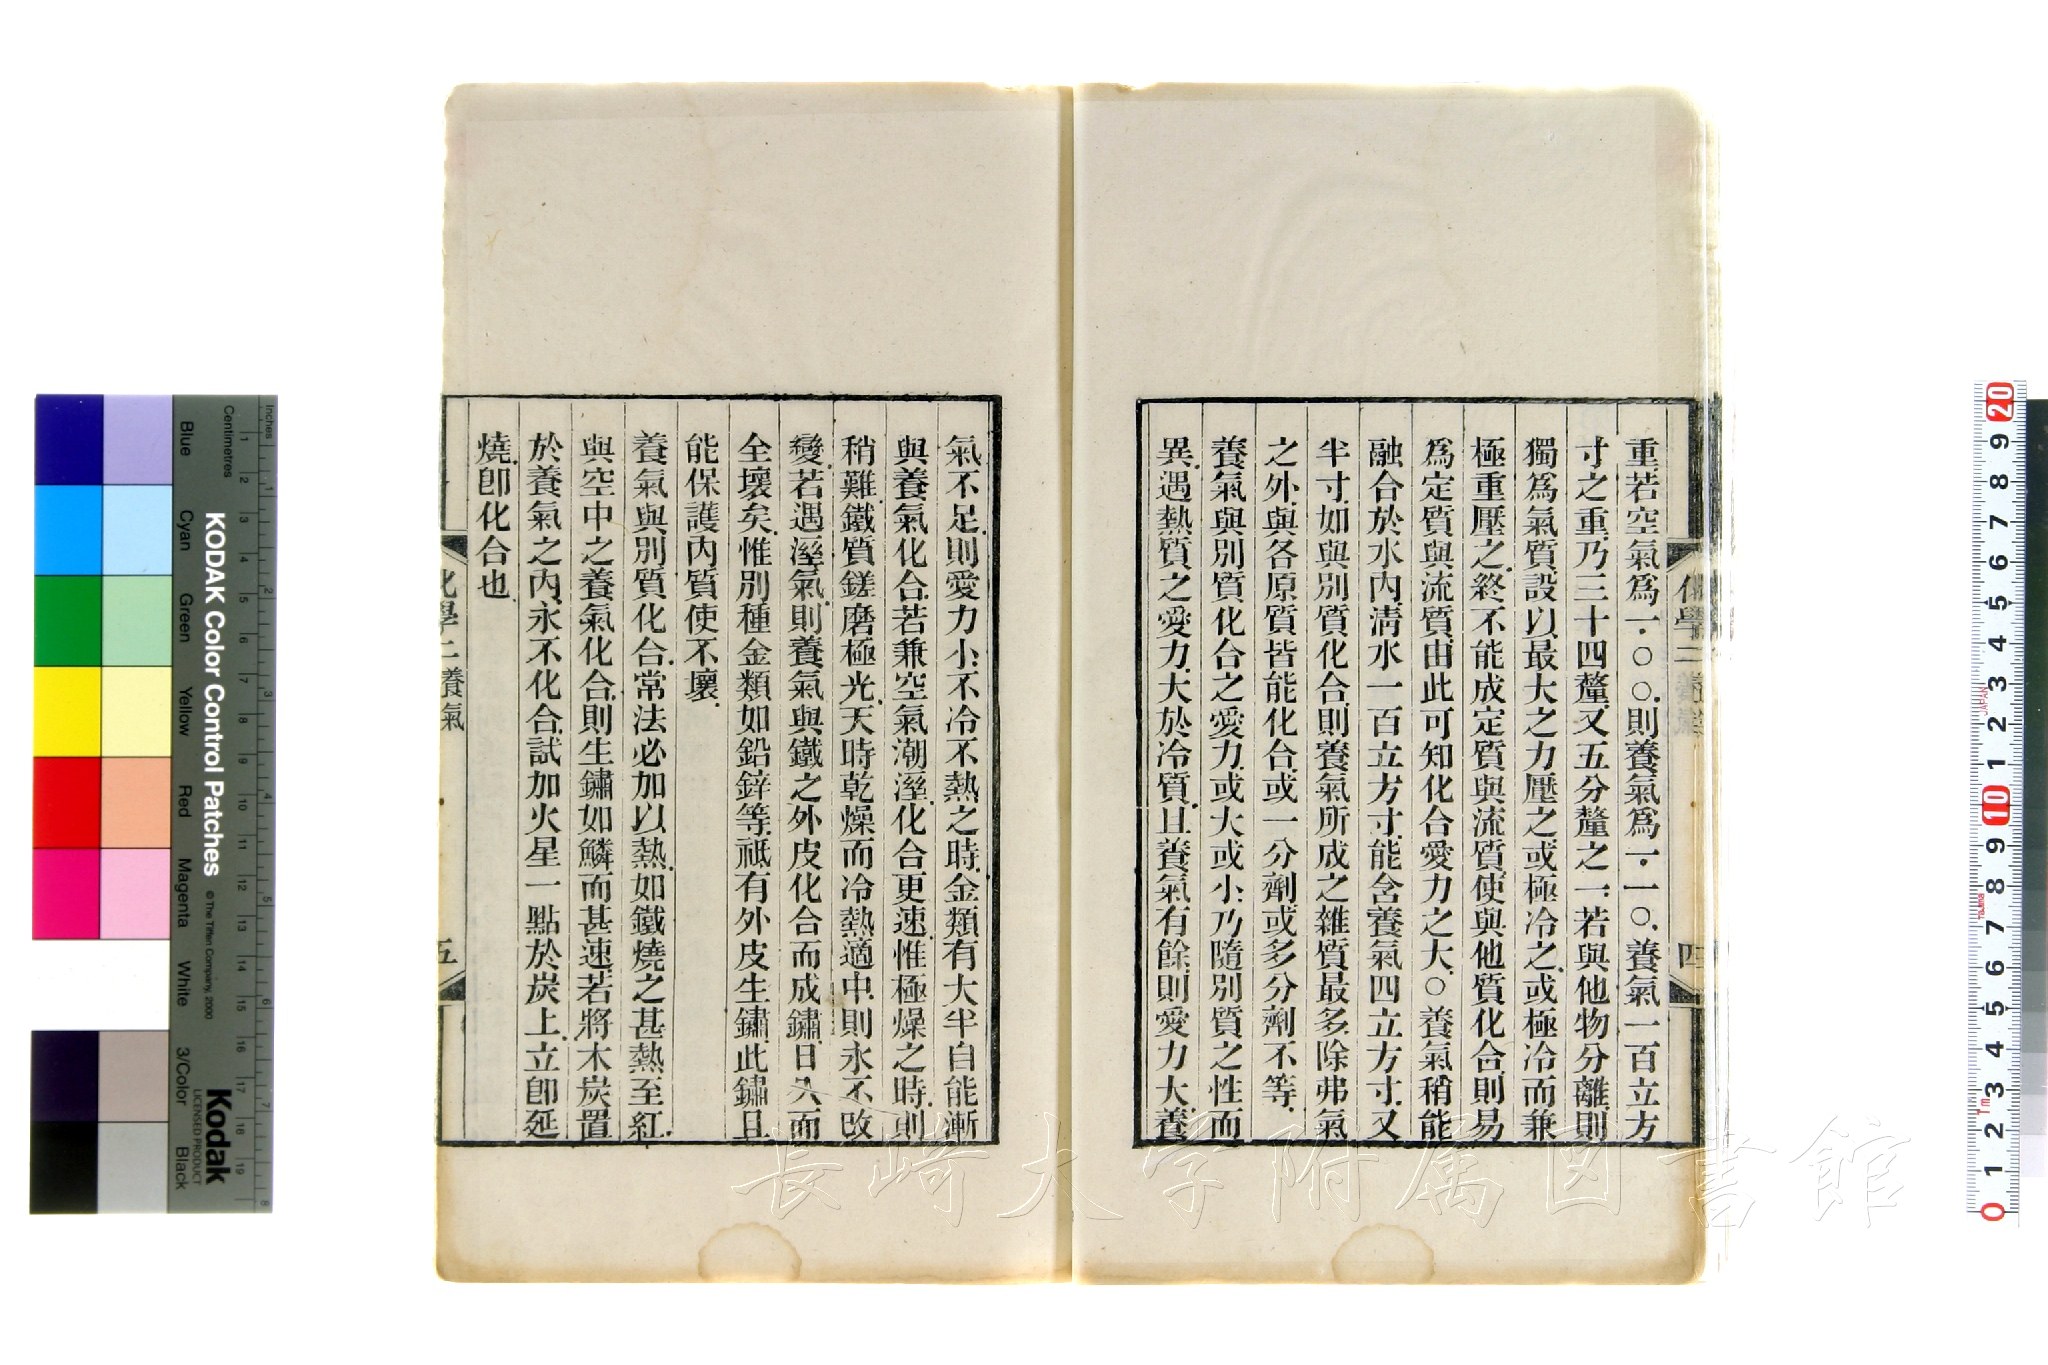 重若空氣爲一·〇〇〇則養氣爲一·一一〇養氣一百立方
寸之重乃三十四釐又五分釐之一若與他物分離則
獨爲氣質設以最大之力壓之或極冷之或極冷而兼
極重壓之終不能成定質與流質使與他質化合則易
爲定質與流質由此可知化合愛力之大〇養氣稍能
融合於水內淸水一百立方寸能含養氣四立方寸又
半寸如與別質化合則養氣所成之雜質最多除弗氣
之外與各原質皆能化合或一分劑或多分劑不等
養氣與別質化合之愛力或大或小乃隨別質之性而
異遇熱質之愛力大於冷質且養氣有餘則愛力大養
化學二
四
氣不足則愛力小不冷不熱之時金類有大半自能漸
與養氣化合若兼空氣潮溼化合更速惟極燥之時則
稍難鐵質鎈磨極光天時乾燥而冷熱適中則永不改
變若遇溼氣則養氣與鐵之外皮化合而成鏽日久而
全壞矣惟別種金類如鉛鋅等祗有外皮生鏽此鏽且
能保護內質使不壞
養氣與別質化合常法必加以熱如鐵燒之甚熱至紅
與空中之養氣化合則生鏽如鱗而甚速若將木炭置
於養氣之內永不化合試加火星一點於炭上立卽延
燒卽化合也
化學二養氣
五
長崎大学附属図書館
KODAK Color Control Patches
© The Tiffen Company, 2000
Kodak
LICENSED PRODUCT
Inches
Centimetres
Blue
Cyan
Green
Yellow
Red
Magenta
White
3/Color
Black
1 2 3 4 5 6 7 8
1 2 3 4 5 6 7 8 9 10 11 12 13 14 15 16 17 18 19
20 9 8 7 6 5 4 3 2 1 10 9 8 7 6 5 4 3 2 1 0
JAPAN